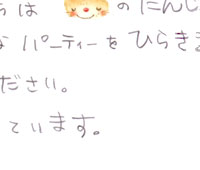 ちは の たんじ
な パーティーを ひらき
ださい。
ています。